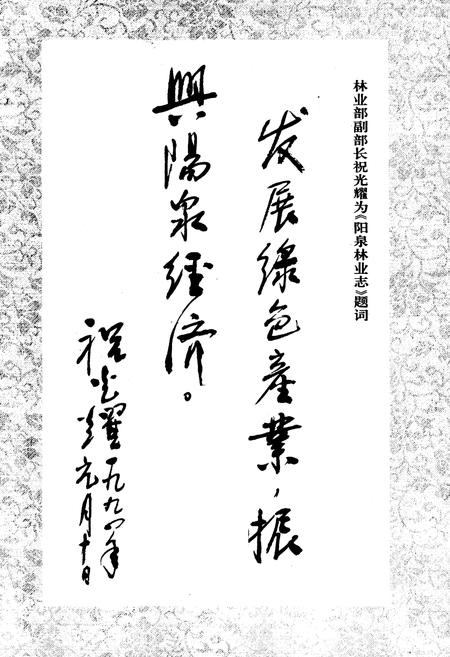 林业部副部长祝光耀为《阳泉林业志》题词
发展绿色產業，振
興陽泉經济。
祝光耀一九九四年
元月十日